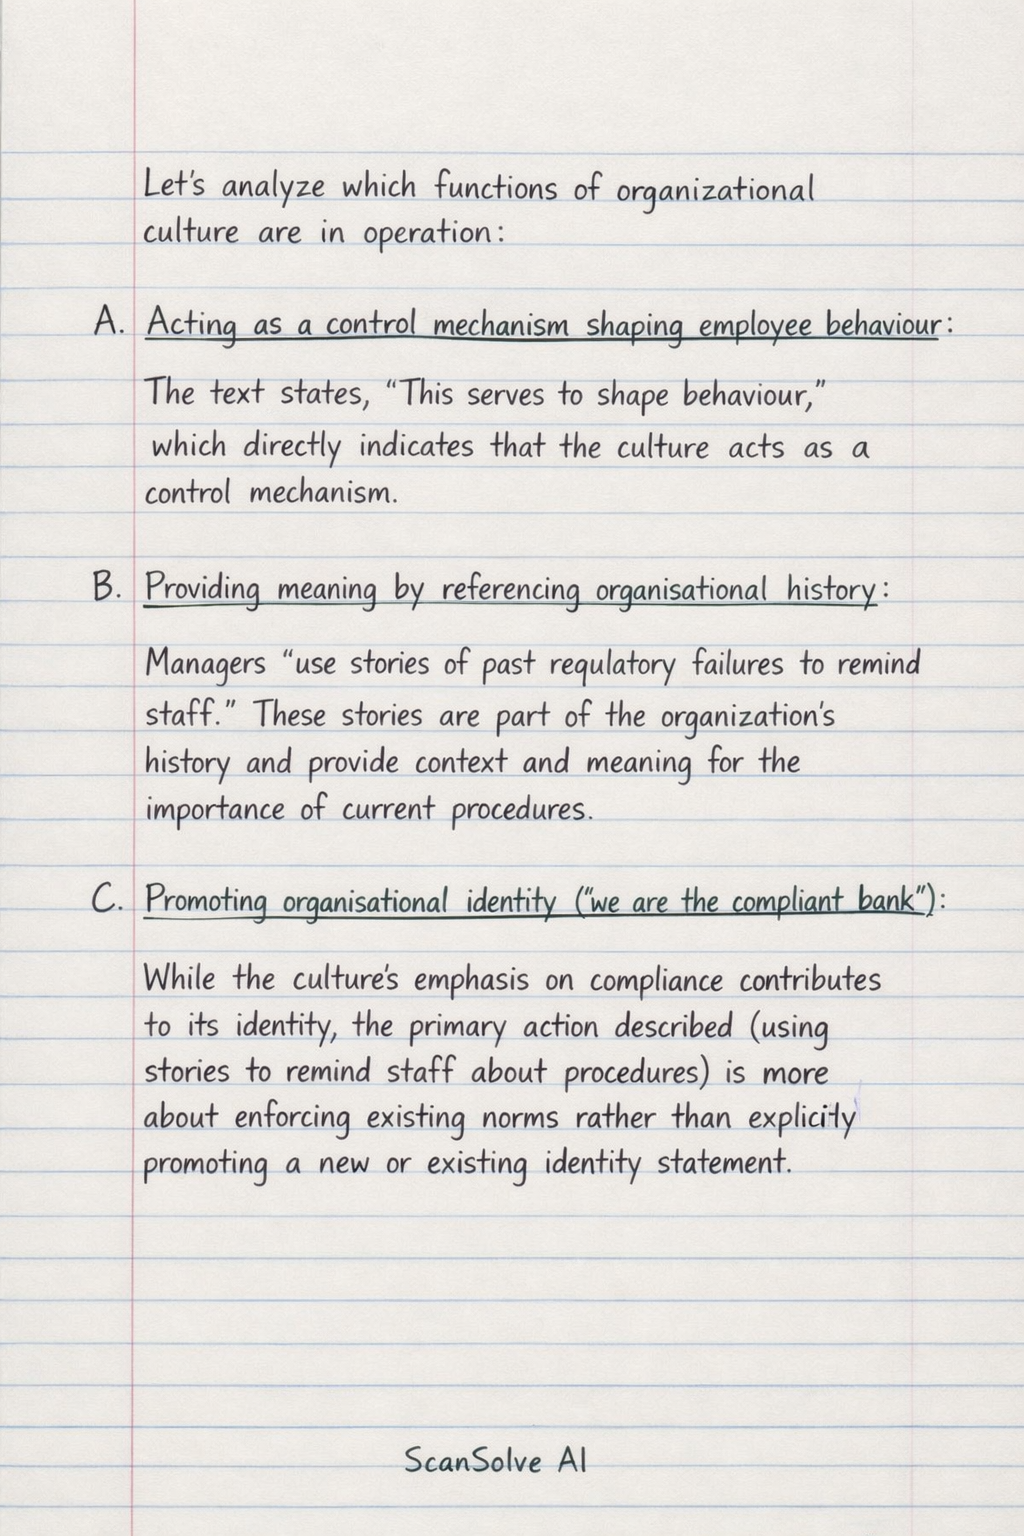 Let's analyze which functions of organizational
culture are in operation:
A. Acting as a control mechanism shaping employee behaviour:
The text states, “This serves to shape behaviour,”
which directly indicates that the culture acts as a
control mechanism.
B. Providing meaning by referencing organisational history:
Managers “use stories of past regulatory failures to remind
staff.” These stories are part of the organization's
history and provide context and meaning for the
importance of current procedures.
C. Promoting organisational identity (“we are the compliant bank”):
While the culture's emphasis on compliance contributes
to its identity, the primary action described (using
stories to remind staff about procedures) is more
about enforcing existing norms rather than explicitly
promoting a new or existing identity statement.
ScanSolve AI